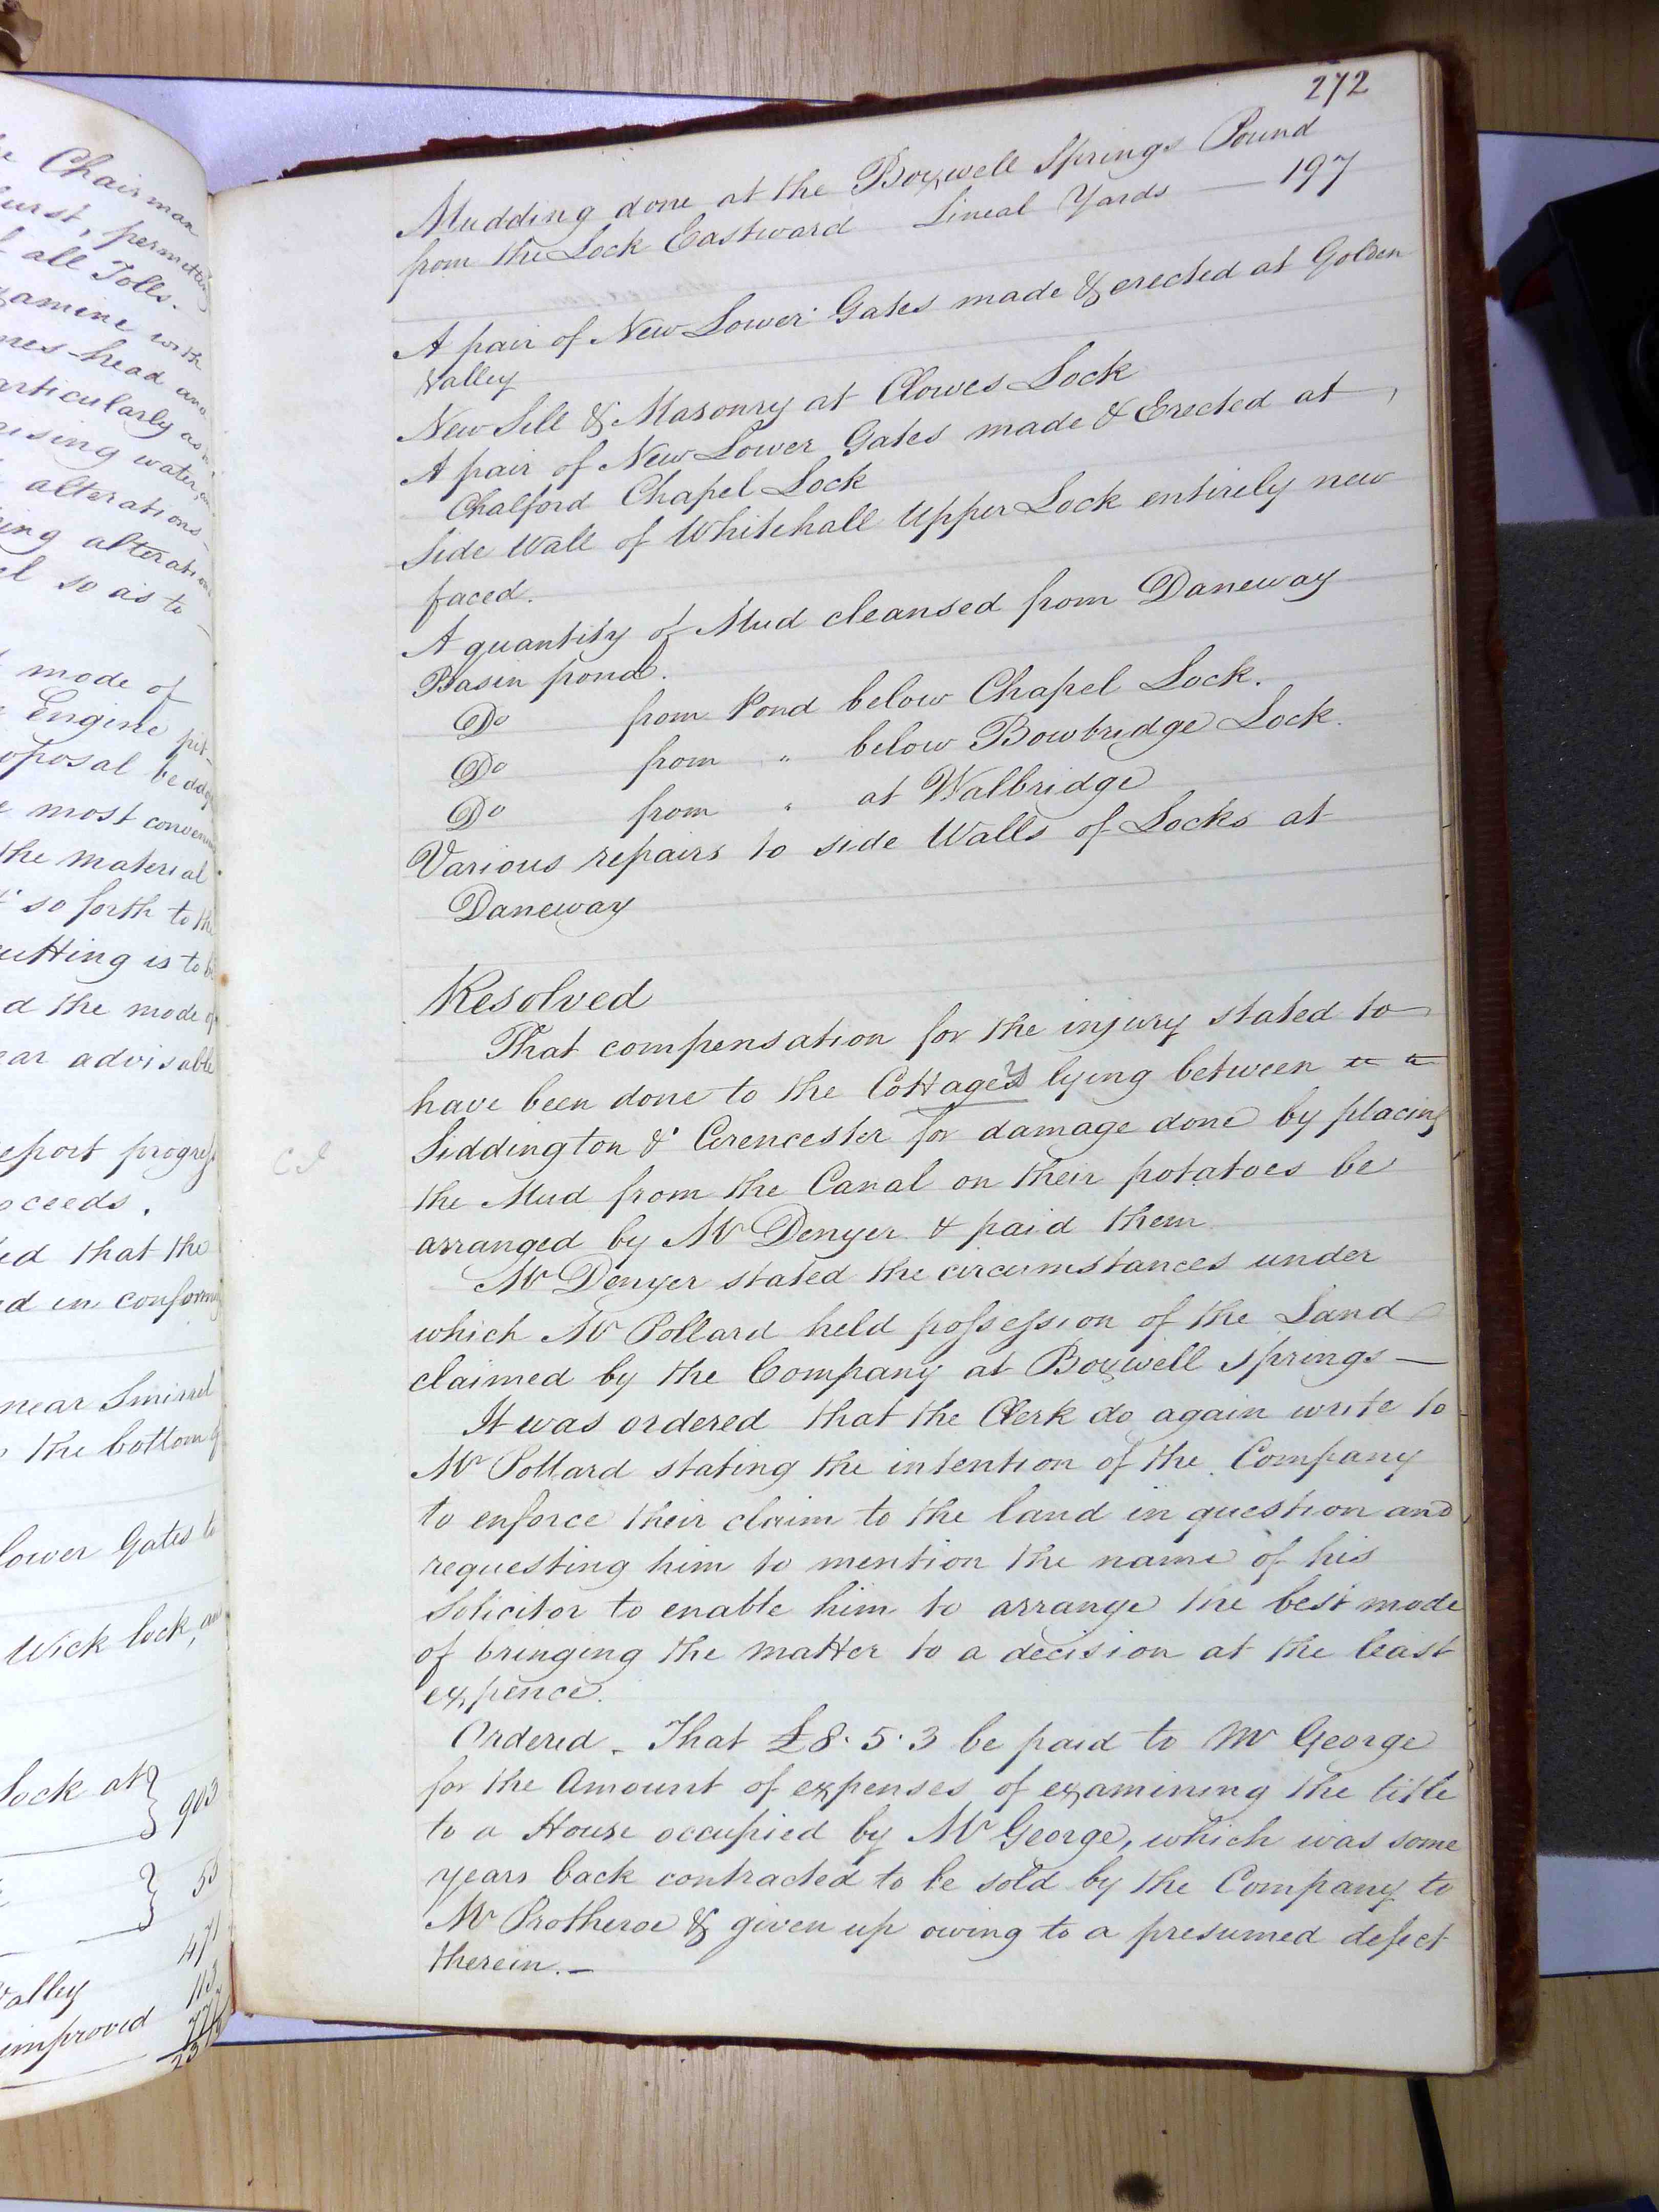 e Chairman
hurst, permitting
f all Tolls.
xamine with
mes-head and
articularly as
aising water,
alterations
ing alteration
el so as to
mode of
e Engine pit
oposal be
e most
the material
so forth to the
cutting is to be
d the mode of
ear advisable
eport progress
oceeds.
ed that the
d in
near Smirrel
the bottom of
lower Gates to
Wick lock,
Lock at } 903
} 55
471
Valley 113
improved
272
Mudding done at the Boxwell Springs Pound
from the Lock Eastward Lineal Yards — 197
A pair of New Lower Gates made & erected at Golden
Valley
New Sill & Masonry at Clowes Lock
A pair of New Lower Gates made & Erected at
Chalford Chapel Lock
Side Wall of Whitehall Upper Lock entirely new
faced.
A quantity of Mud cleansed from Daneway
Basin pond.
Do from Pond below Chapel Lock.
Do from " below Bowbridge Lock.
Do from " at Walbridge
Various repairs to side Walls of Locks at
Daneway
Resolved
That compensation for the injury stated to
have been done to the Cottagers lying between
Siddington & Cirencester for damage done by placing
the Mud from the Canal on their potatoes be
arranged by Mr Denyer & paid them
Mr Denyer stated the circumstances under
which Mr Pollard held possession of the Land
claimed by the Company at Boxwell Springs —
It was ordered that the Clerk do again write to
Mr Pollard stating the intention of the Company
to enforce their claim to the land in question and
requesting him to mention the name of his
Solicitor to enable him to arrange the best mode
of bringing the matter to a decision at the least
expence.
Ordered - That £8.5.3 be paid to Mr George
for the Amount of expenses of examining the title
to a House occupied by Mr George, which was some
years back contracted to be sold by the Company to
Mr Protheroe & given up owing to a presumed defect
therein. —